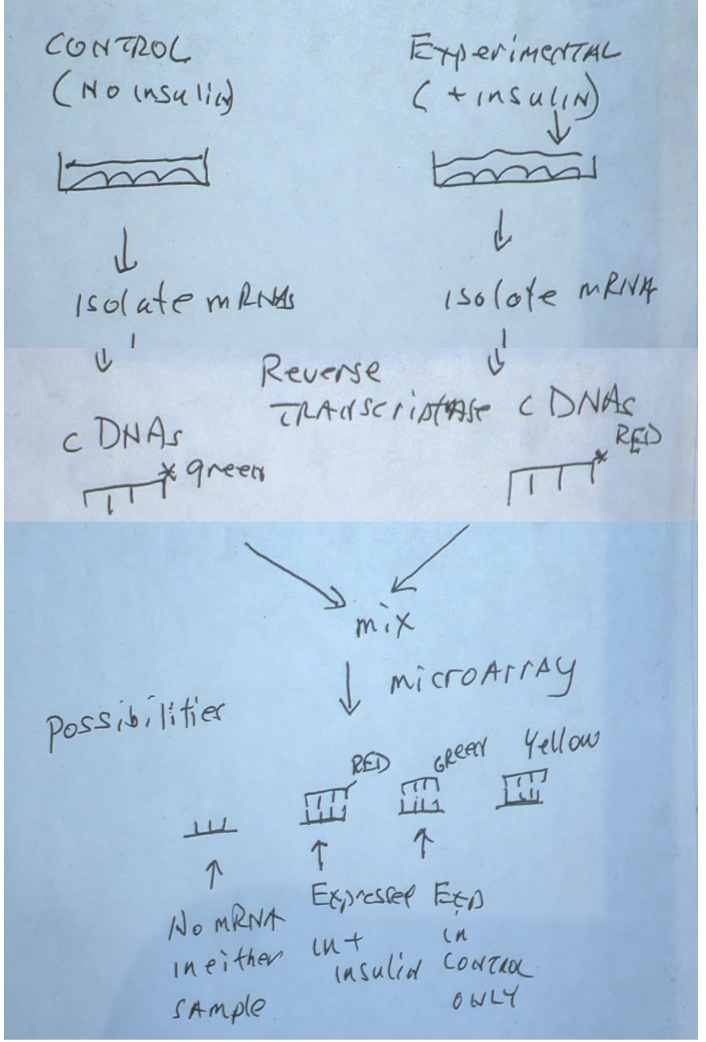 CONTROL
(No insulin)
Experimental
(+ insulin)
Isolate mRNAs
Isolate mRNA
Reverse
Transcriptase
cDNAs
green
cDNAs
RED
mix
microArray
Possibilities
RED
Green
Yellow
No mRNA
in either
sample
Expressed
in +
insulin
Exp
in
control
only